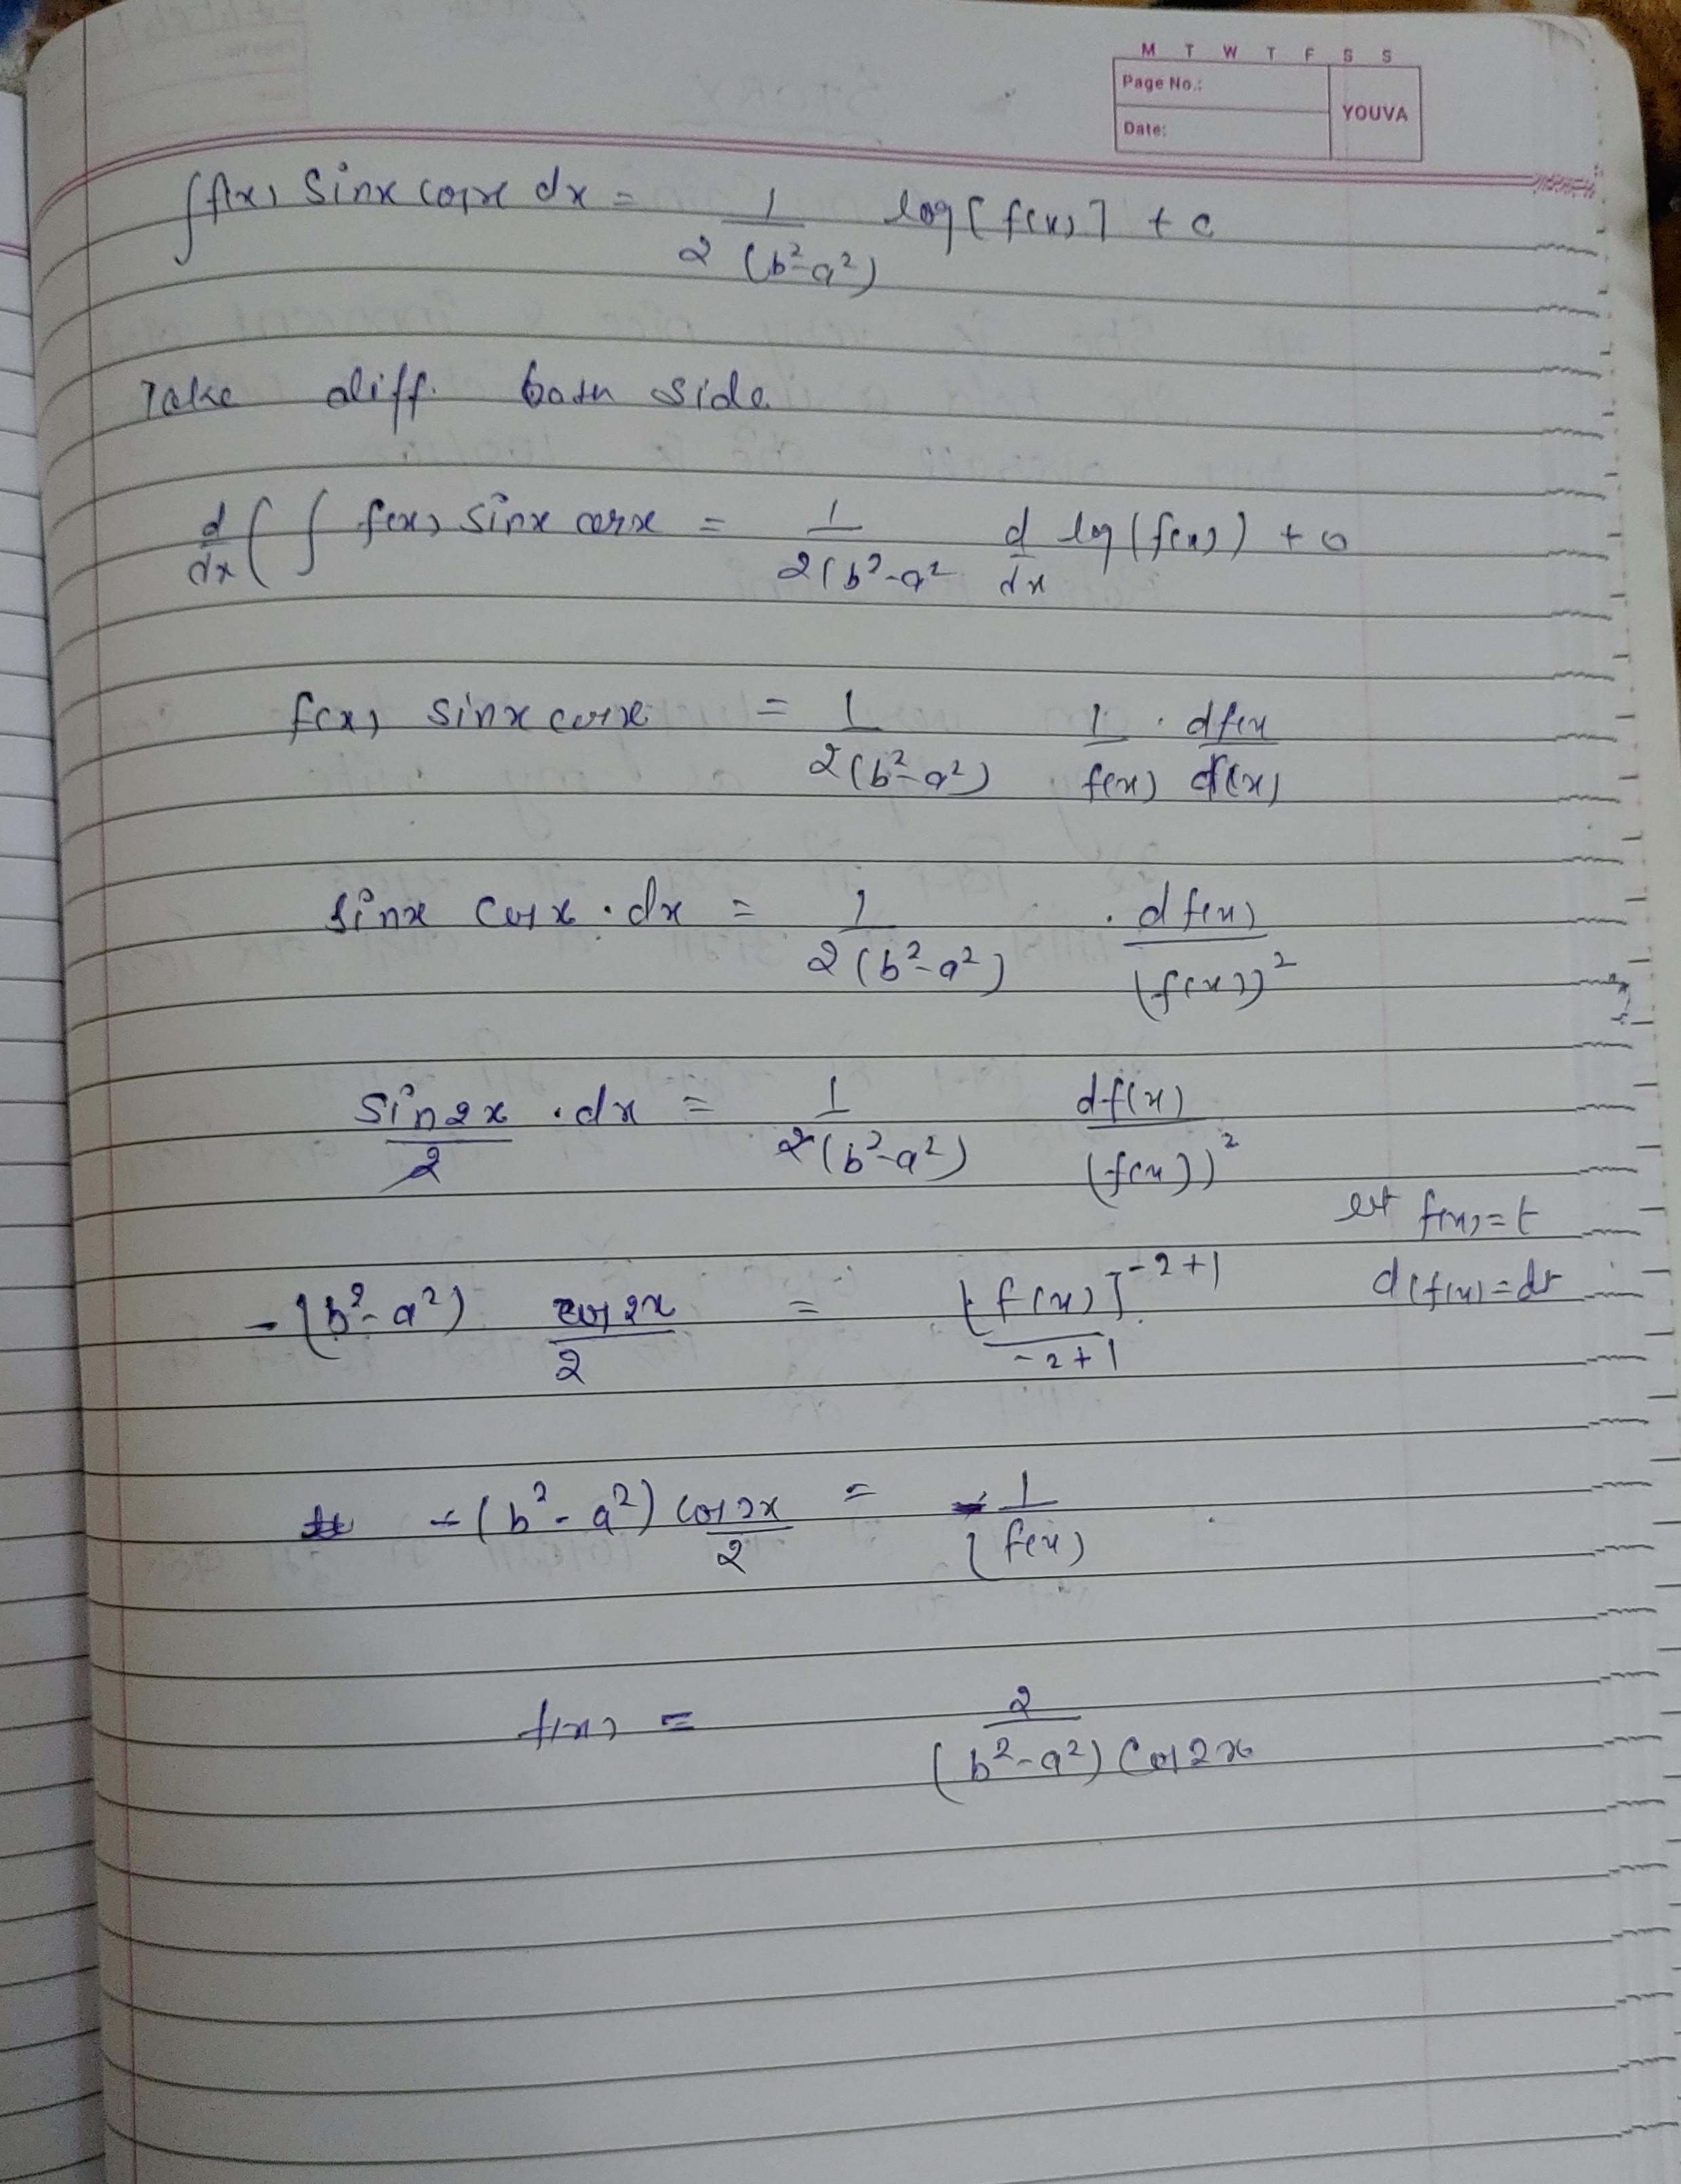 M T W T F S S
Page No.:
YOUVA
Date:
∫f(x) sinx cosx dx = 1/2(b²-a²) log[f(x)] + c
Take diff. both side
d/dx(∫ f(x) sinx cosx = 1/2(b²-a² d/dx log(f(x)) + 0
f(x) sinx cosx = 1/2(b²-a²) 1/f(x) · df(x/d(x)
sinx cosx · dx = 1/2(b²-a²) · df(x)/(f(x))²
sin2x/2 · dx = 1/2(b²-a²) df(x)/(f(x))²
let f(x) = t
d(f(x) = dt
-(b²-a²) cos2x/2 = [f(x)]⁻²⁺¹/-2+1
-(b²-a²) cos2x/2 = -1/[f(x)
f(x) = 2/(b²-a²) cos2x